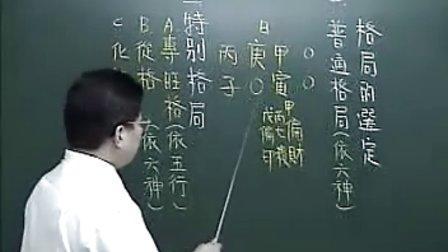 格局的選定
一普通格局(依六神)
○○
甲寅 甲偏財
丙七殺
戊偏印
日
庚○
丙子
二特別格局
A專旺格(依五行)
B從格(依六神)
C化